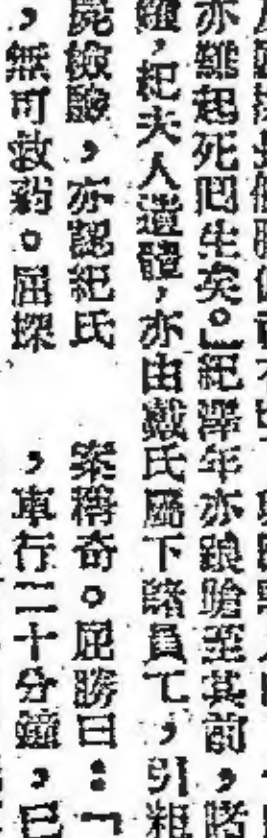 亦難起死囘生矣。」紀澤年亦踉蹌至其前，睹
，紀夫人遺體，亦由戴氏屬下諸員工，引粗
屍檢驗，亦認紀氏
，無可救藥。屈探
案稱奇。屈勝曰：「
，車行二十分鐘，已